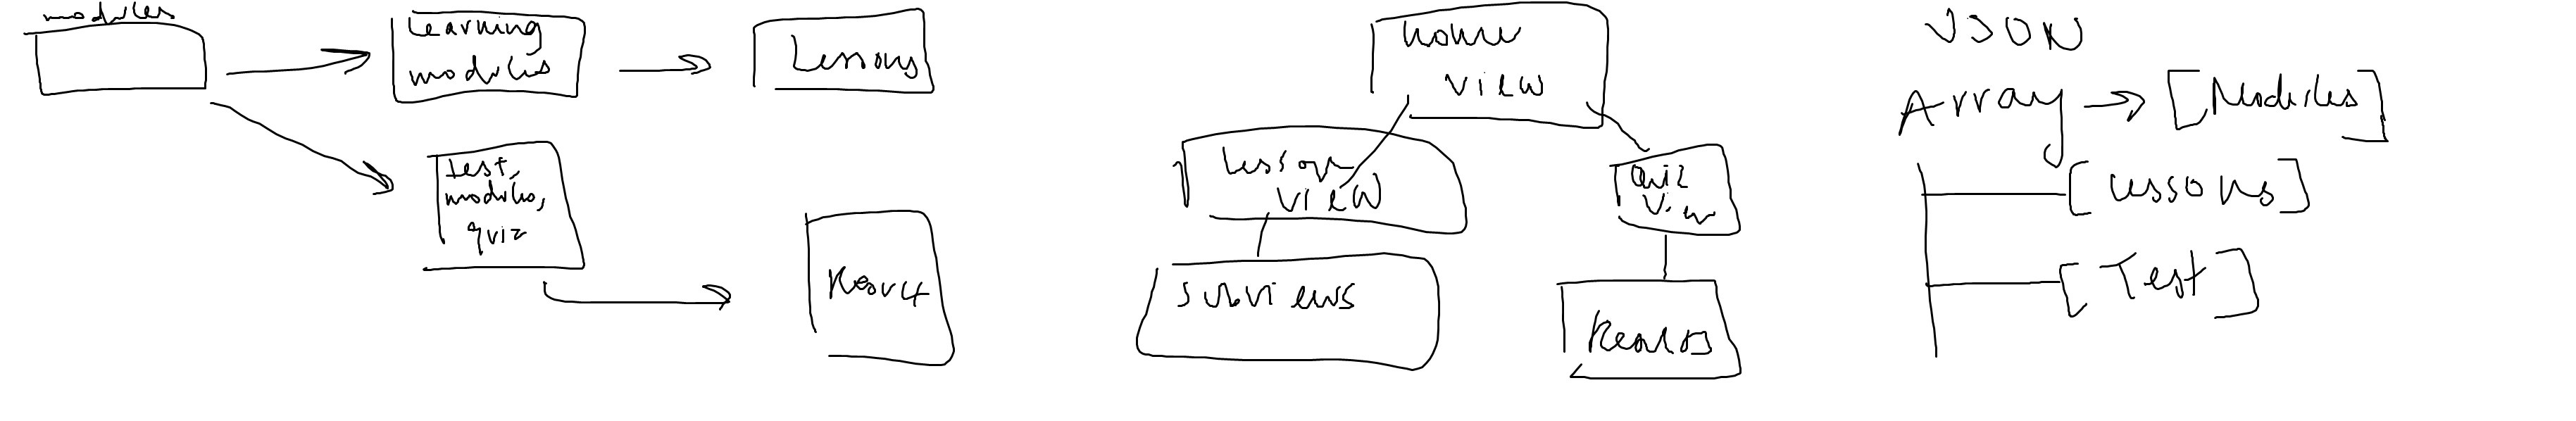 modules
Learning
modules
Lessons
test,
modules,
quiz
Result
home
view
Lesson
view
Quiz
view
subviews
Results
JSON
Array → [Modules]
[Lessons]
[Test]